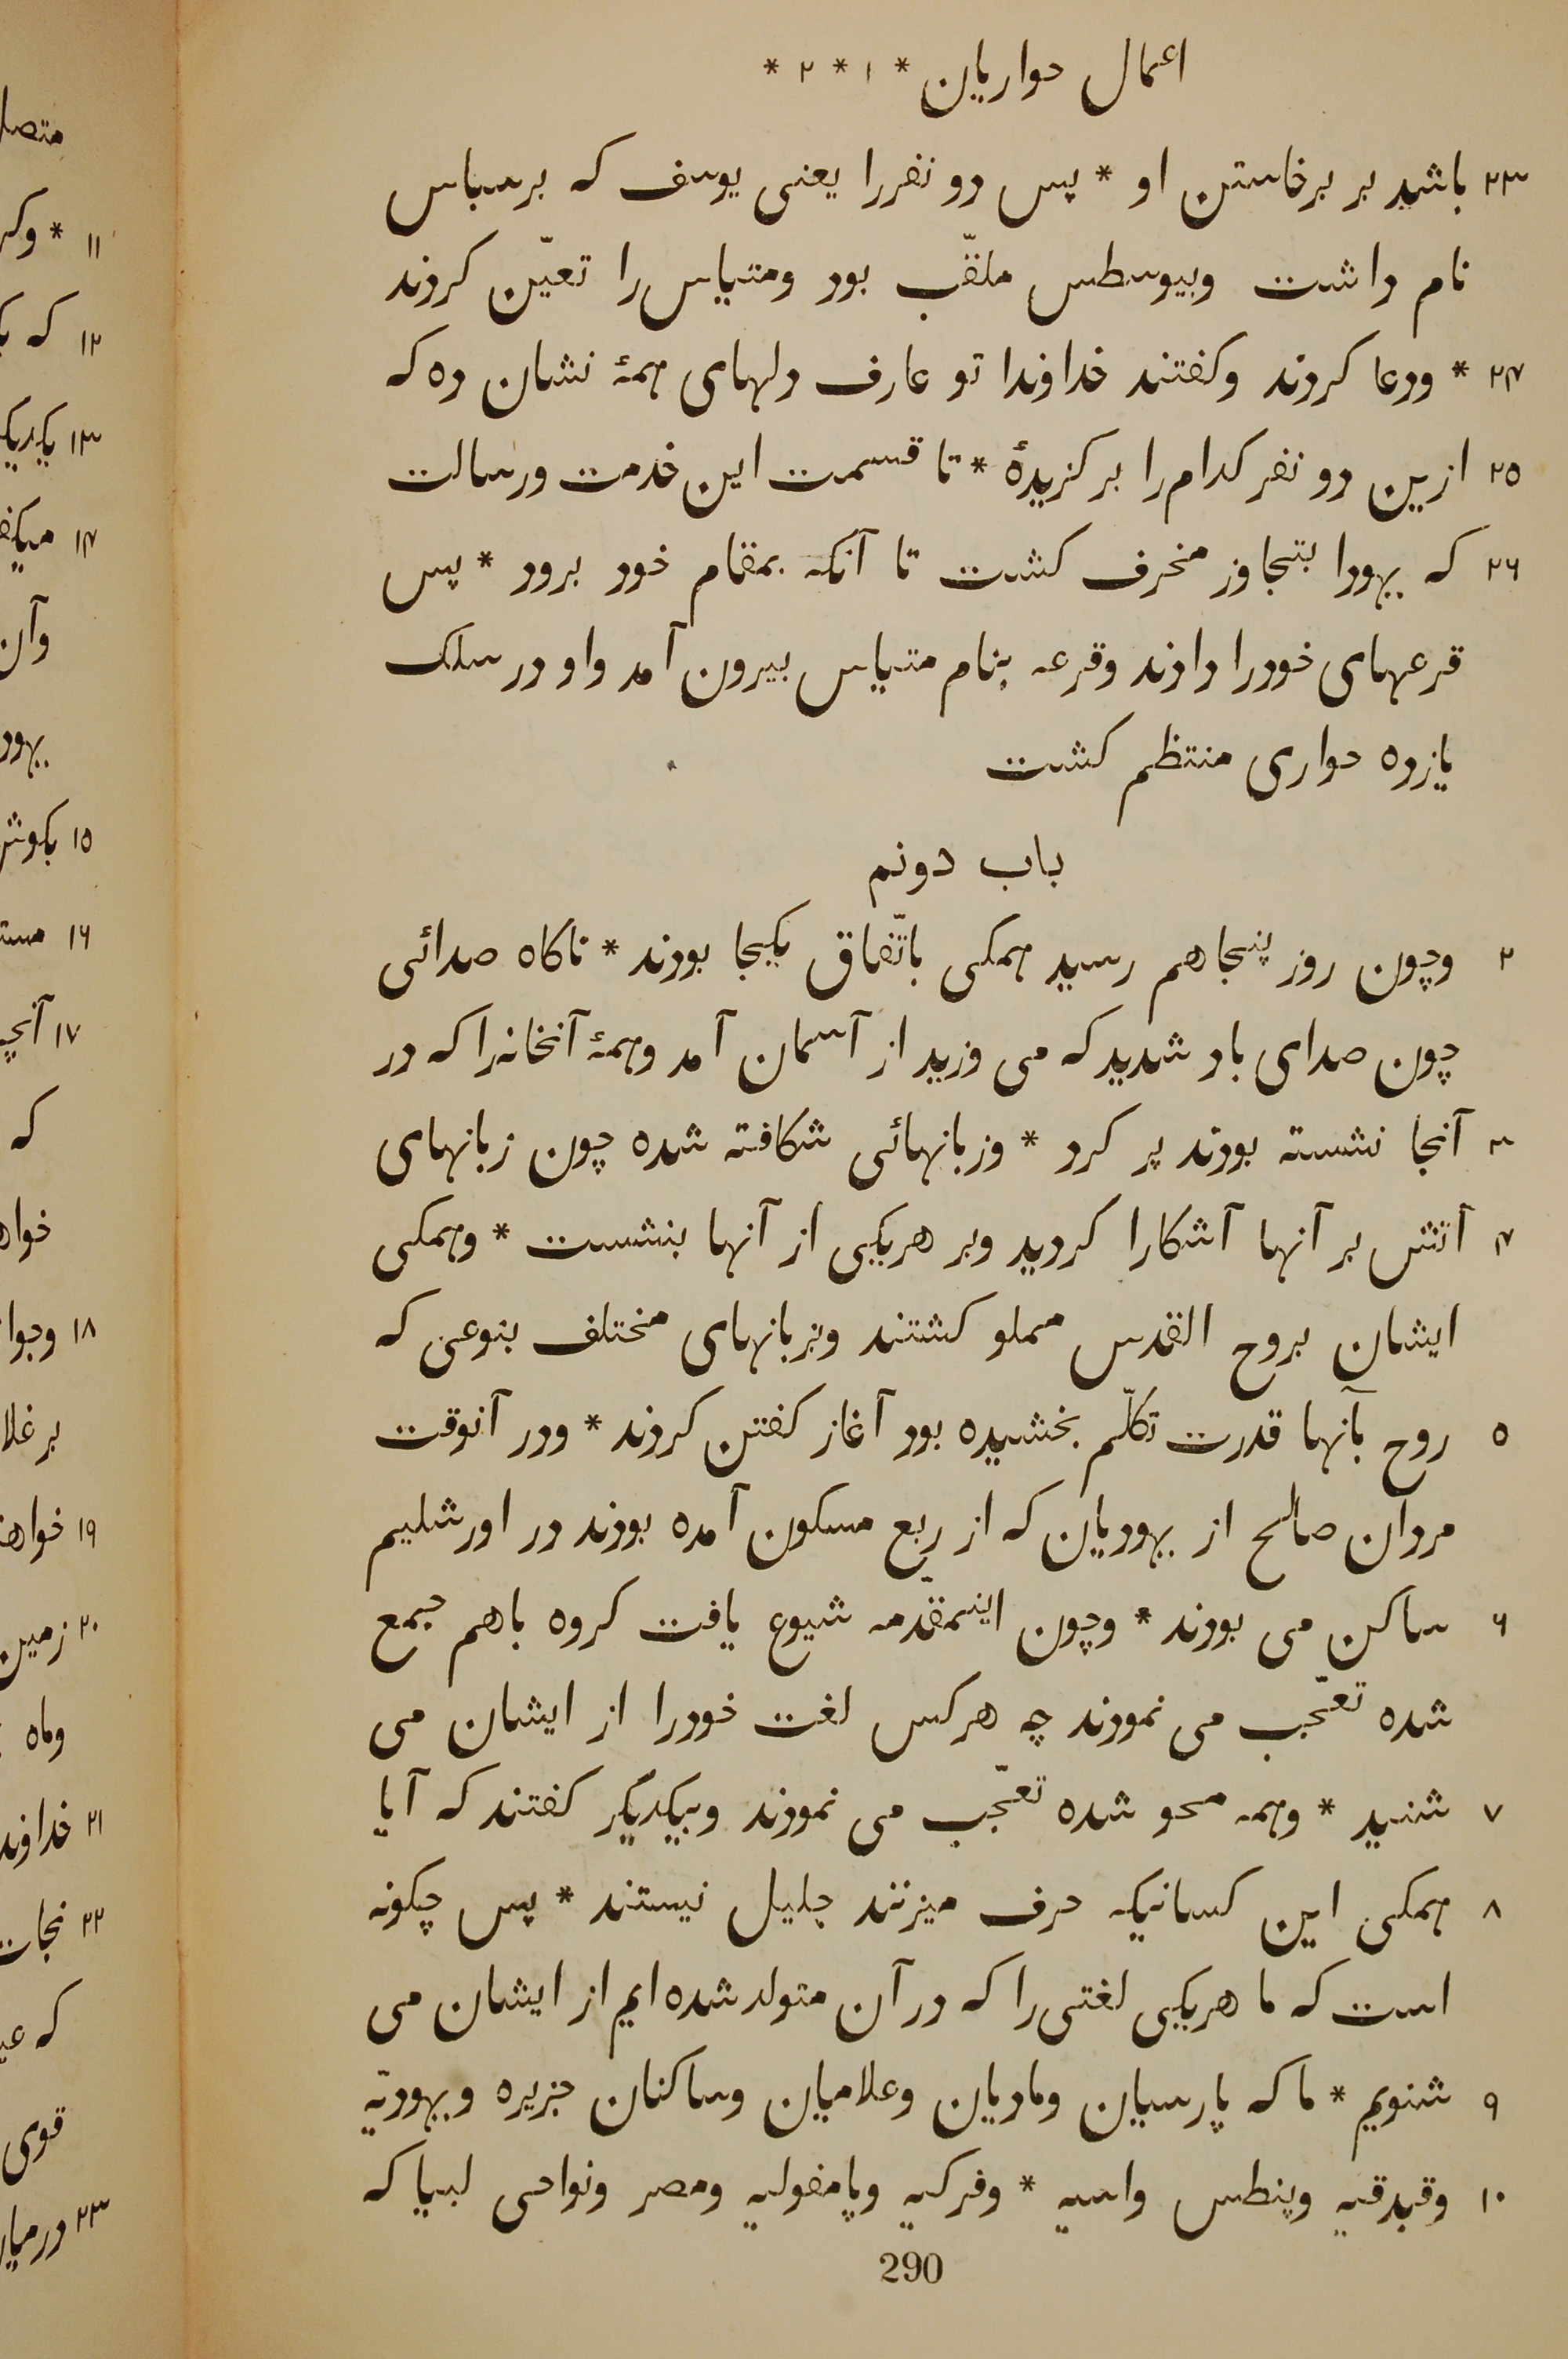 اعمال حواریان * ۱ * ۲ *
۲۳ باشد بر برخاستن او * پس دو نفررا یعنی یوسف که برسباس
نام داشت وبیوسطس ملقّب بود ومتیاس را تعیّن کردند
۲۴ * ودعا کردند وکفتند خداوندا تو عارف دلهای همهٔ نشان ده که
۲۵ ازین دو نفر کدام را بر کزیدهٔ * تا قسمت این خدمت ورسالت
۲۶ که یهودا بتجاوز منحرف کشت تا آنکه بمقام خود برود * پس
قرعهای خودرا دادند وقرعه بنام متیاس بیرون آمد واو در سلک
یازده حواری منتظم کشت
باب دونم
۲ وچون روز پنجاهم رسید همکی باتّفاق یکجا بودند * ناکاه صدائی
چون صدای باد شدید که می وزید از آسمان آمد وهمهٔ آنخانه‌را که در
۳ آنجا نشسته بودند پر کرد * وزبانهائی شکافته شده چون زبانهای
۴ آتش بر آنها آشکارا کردید وبر هریکی از آنها بنشست * وهمکی
ایشان بروح القدس مملو کشتند وبزبانهای مختلف بنوعی که
۵ روح بآنها قدرت تکلّم بخشیده بود آغاز کفتن کردند * ودر آنوقت
مردان صالح از یهودیان که از ربع مسکون آمده بودند در اورشلیم
۶ ساکن می بودند * وچون اینمقدّمه شیوع یافت کروه باهم جمع
شده تعجّب می نمودند چه هرکس لغت خودرا از ایشان می
۷ شنید * وهمه محو شده تعجّب می نمودند وبیکدیگر کفتند که آیا
۸ همکی این کسانیکه حرف میزنند جلیل نیستند * پس چکونه
است که ما هریکی لغتی را که در آن متولد شده ایم از ایشان می
۹ شنویم * ما که پارسیان ومادیان وعلامیان وساکنان جزیره ویهودیّه
۱۰ وقپدقیه وپنطس واسیه * وفرکیه وپامفولیه ومصر ونواحی لبیا که
290
متصل
۱۱ *
۱۲ که
۱۳
۱۴
وآن
یهود
۱۵
۱۶
۱۷
که
۱۸
۱۹
۲۰ زمین
وماه
۲۱
۲۲ نجات
که
قوی
۲۳